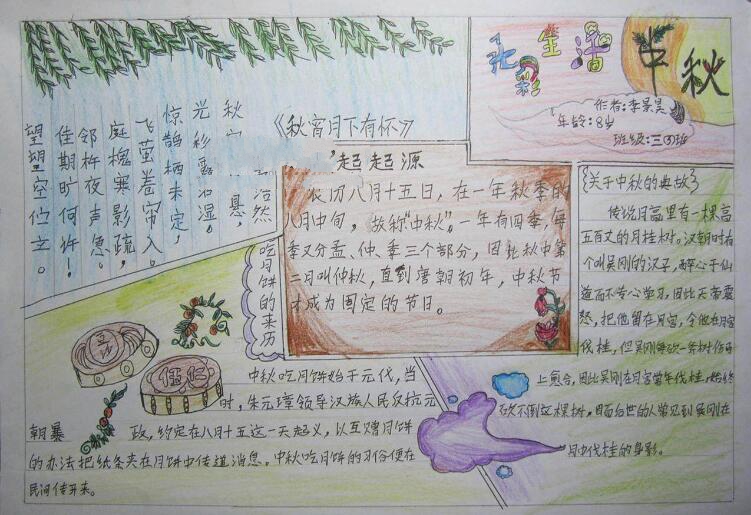 多彩生活 中秋
作者:李景昊
年龄:8岁
班级:三(3)班
《秋宵月下有怀》
浩然
秋
悬,
光彩露沾湿。
惊鹊栖未定,
飞萤卷帘入。
庭槐寒影疏,
邻杵夜声急。
佳期旷何许!
望望空伫立。
起源
农历八月十五日,在一年秋季的
八月中旬,故称“中秋”。一年有四季,每
季又分孟、仲、季三个部分,因此秋中第
二月叫仲秋,直到唐朝初年,中秋节
才成为固定的节日。
《关于中秋的典故》
传说月宫里有一棵高
五百丈的月桂树。汉朝时有
个叫吴刚的汉子,醉心于仙
道而不专心学习,因此天帝震
怒,把他留在月宫,令他在月宫
伐桂,但吴刚每砍一斧树伤口
上愈合,因此吴刚在月宫常年伐桂,始终
砍不倒这棵树,因而后世的人常见到吴刚在
月中伐桂的身影。
吃月饼的来历
豆沙
伍仁
中秋吃月饼始于元代,当
时,朱元璋领导汉族人民反抗元
朝暴政,约定在八月十五这一天起义,以互赠月饼
的办法把纸条夹在月饼中传递消息。中秋吃月饼的习俗便在
民间传开来。